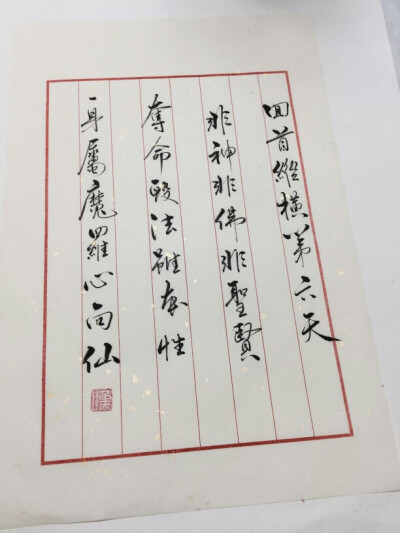 回首縱橫第六天
非神非佛非聖賢
奪命毀法雖本性
身屬魔羅心向仙